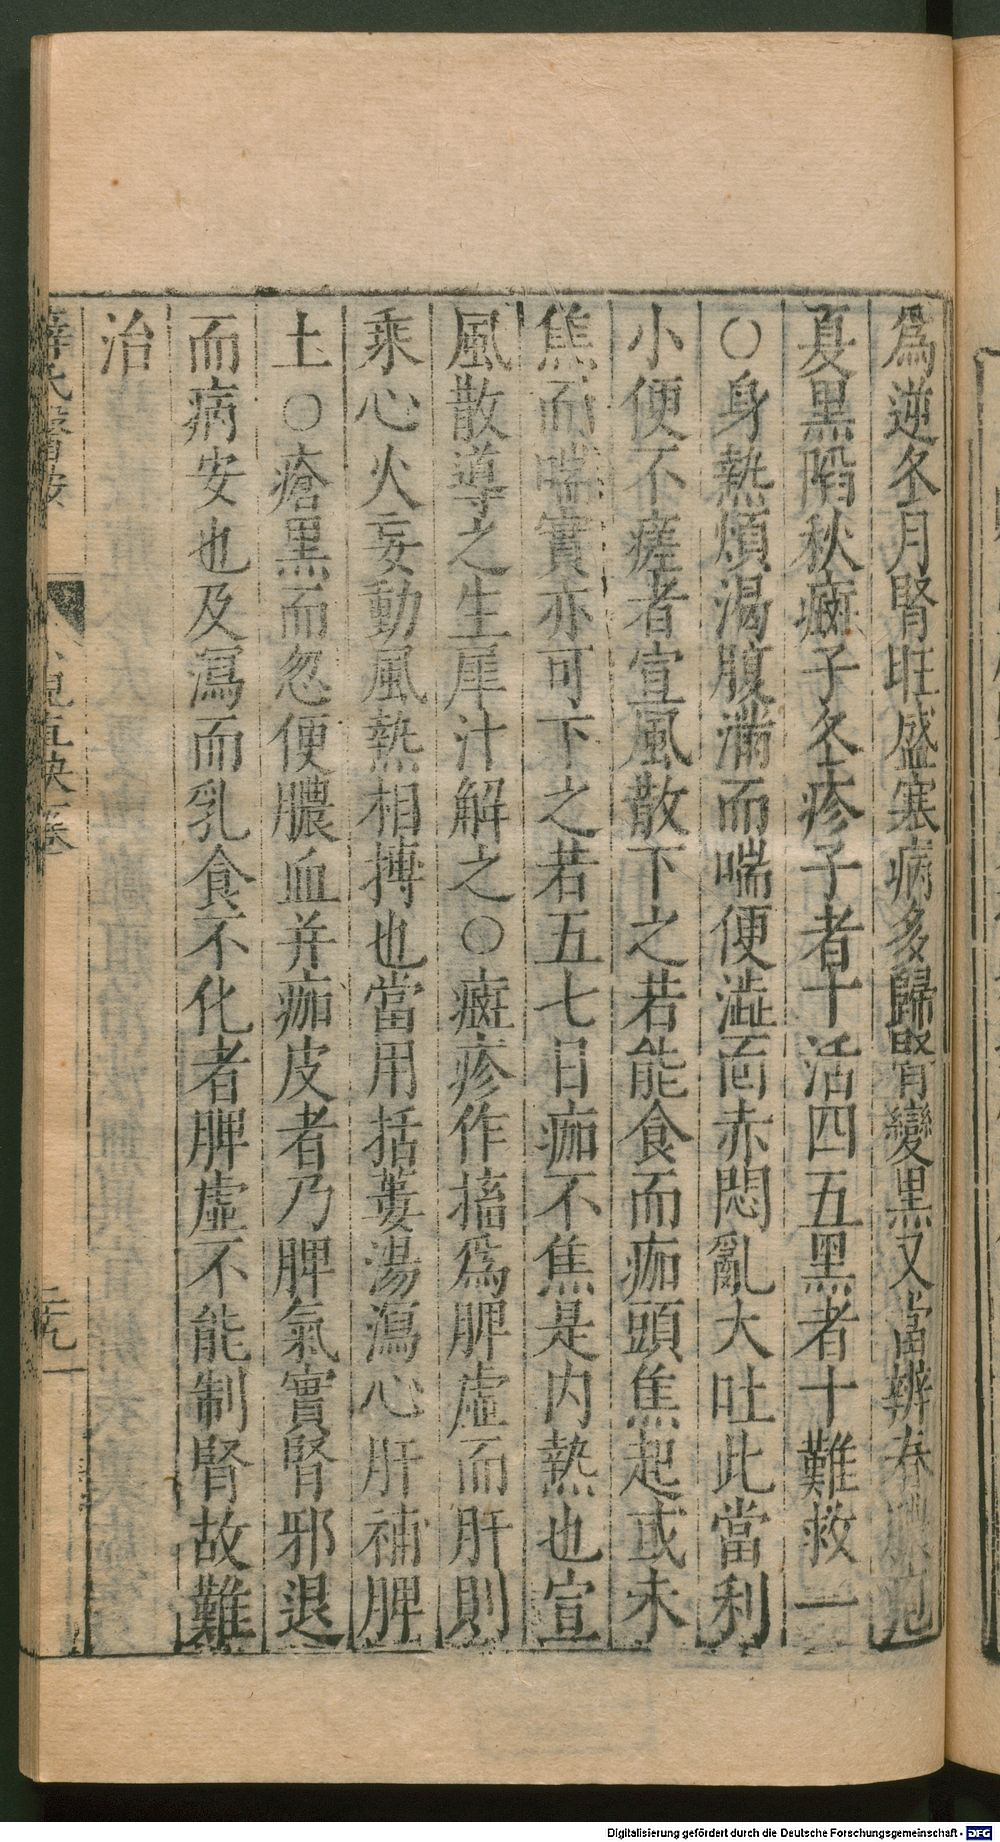 爲逆冬月腎旺盛寒病多歸腎變黑又當辨春膿疱
夏黑陷秋癍子冬疹子者十活四五黑者十難救一
○身熱煩渴腹滿而喘便澁面赤悶亂大吐此當利
小便不瘥者宣風散下之若能食而痂頭焦起或未
焦而喘實亦可下之若五七日痂不焦是内熱也宣
風散導之生犀汁解之○癍疹作搐爲脾虛而肝則
乘心火妄動風熱相摶也當用括蔞湯瀉心肝補脾
土○瘡黑而忽便膿血并痂皮者乃脾氣實腎邪退
而病安也及瀉而乳食不化者脾虛不能制腎故難
治
薛氏醫按 小兒直訣卷一 二九
Digitalisierung gefördert durch die Deutsche Forschungsgemeinschaft - DFG